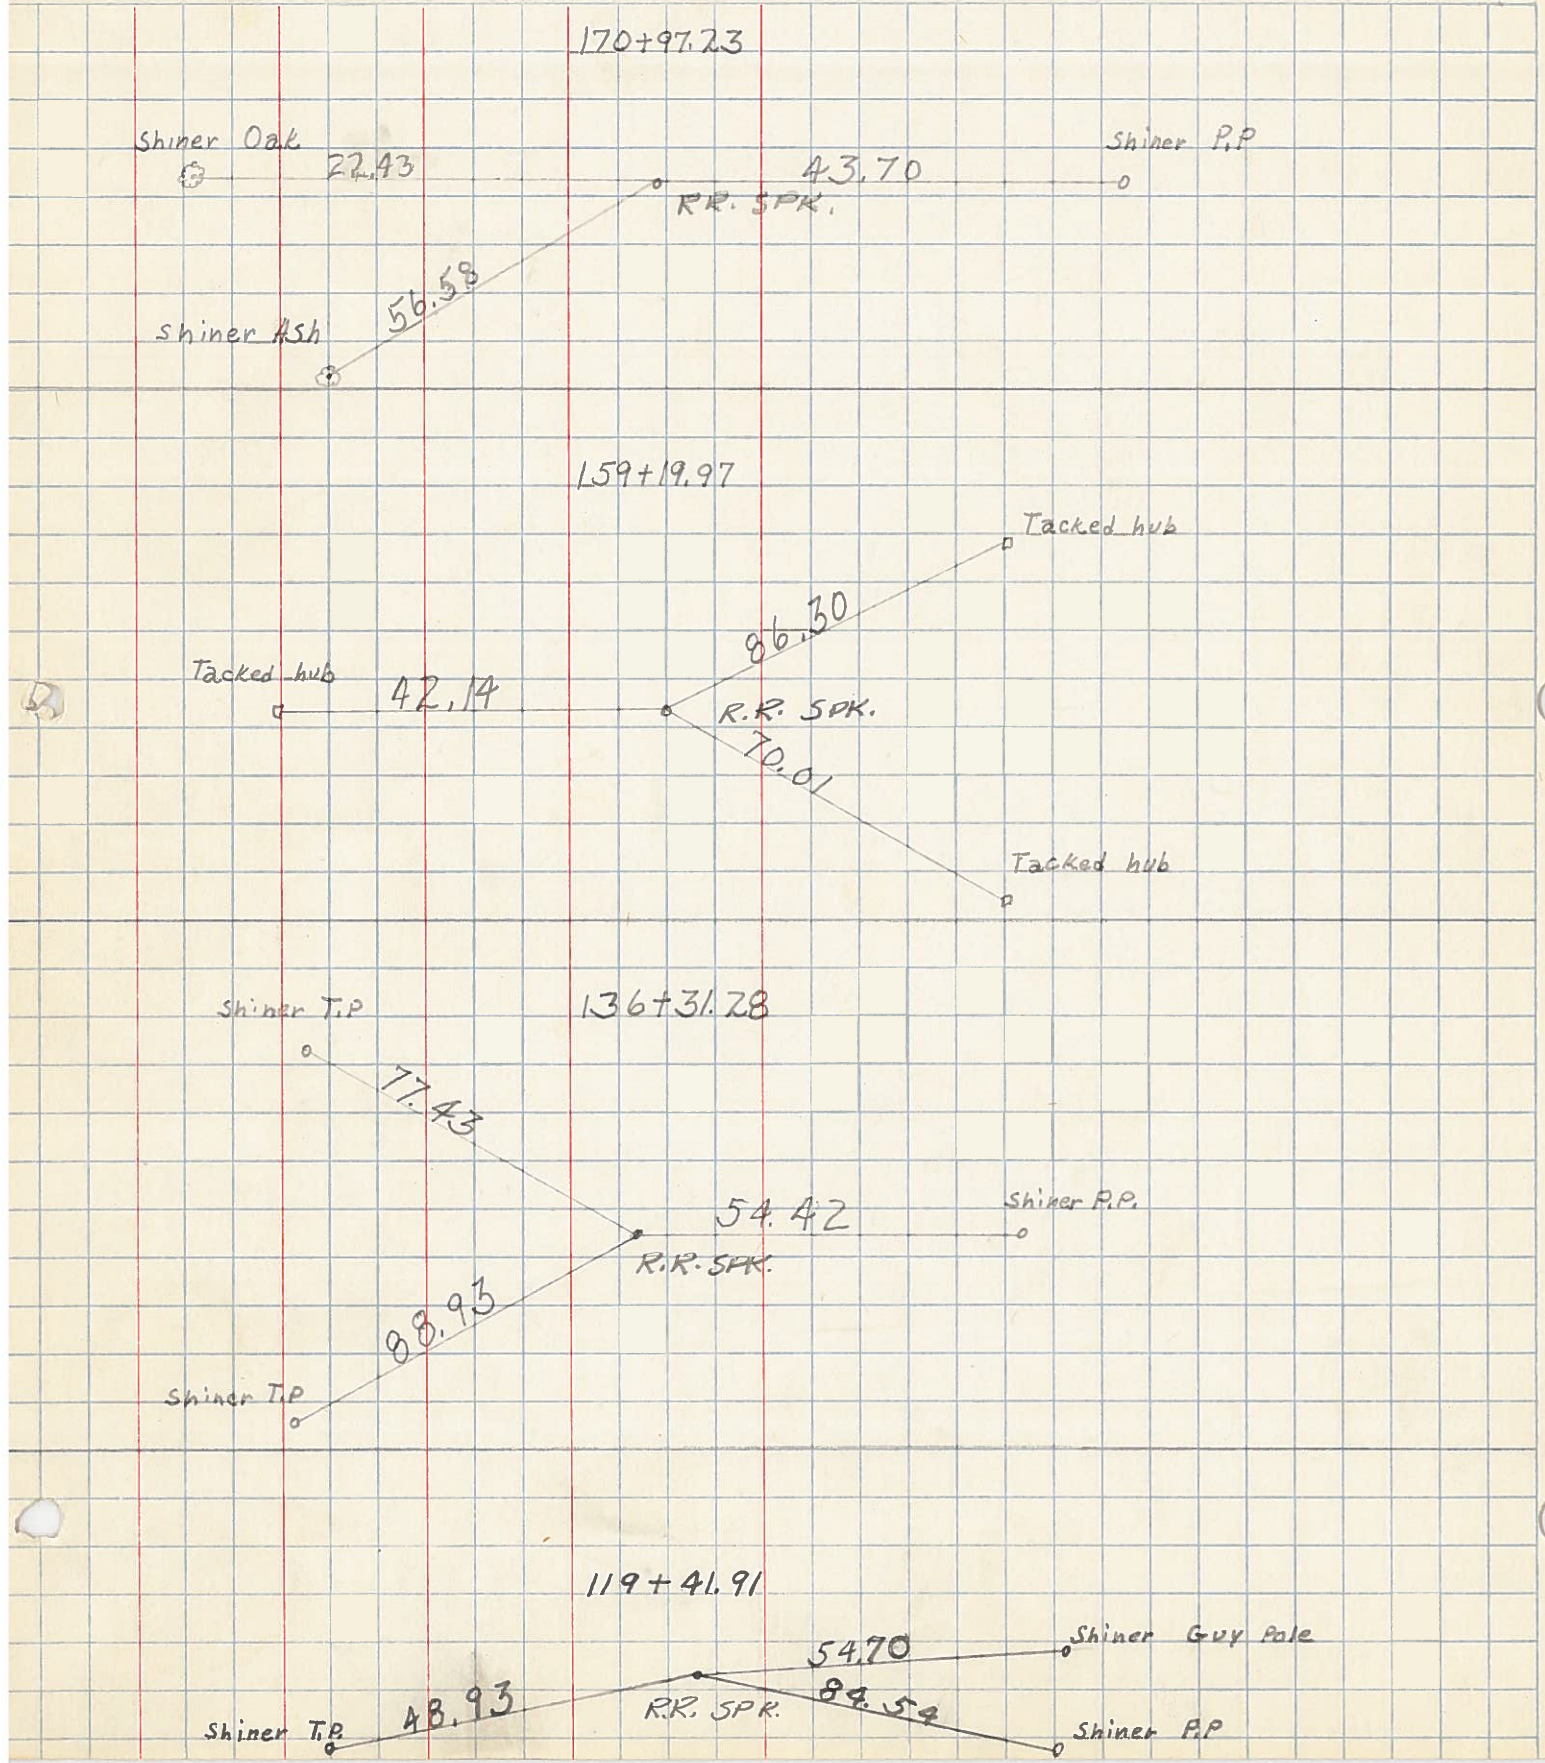 170+97.23
Shiner Oak
22.43
43.70
Shiner P.P
RR. SPK.
56.58
Shiner Ash
159+19.97
Tacked hub
86.30
Tacked hub
42.14
R.R. SPK.
70.01
Tacked hub
136+31.28
Shiner T.P
77.43
54.42
Shiner P.P.
R.R. SPK.
88.93
Shiner T.P
119+41.91
54.70
Shiner Guy Pole
48.93
R.R. SPK.
84.54
Shiner T.P.
Shiner P.P